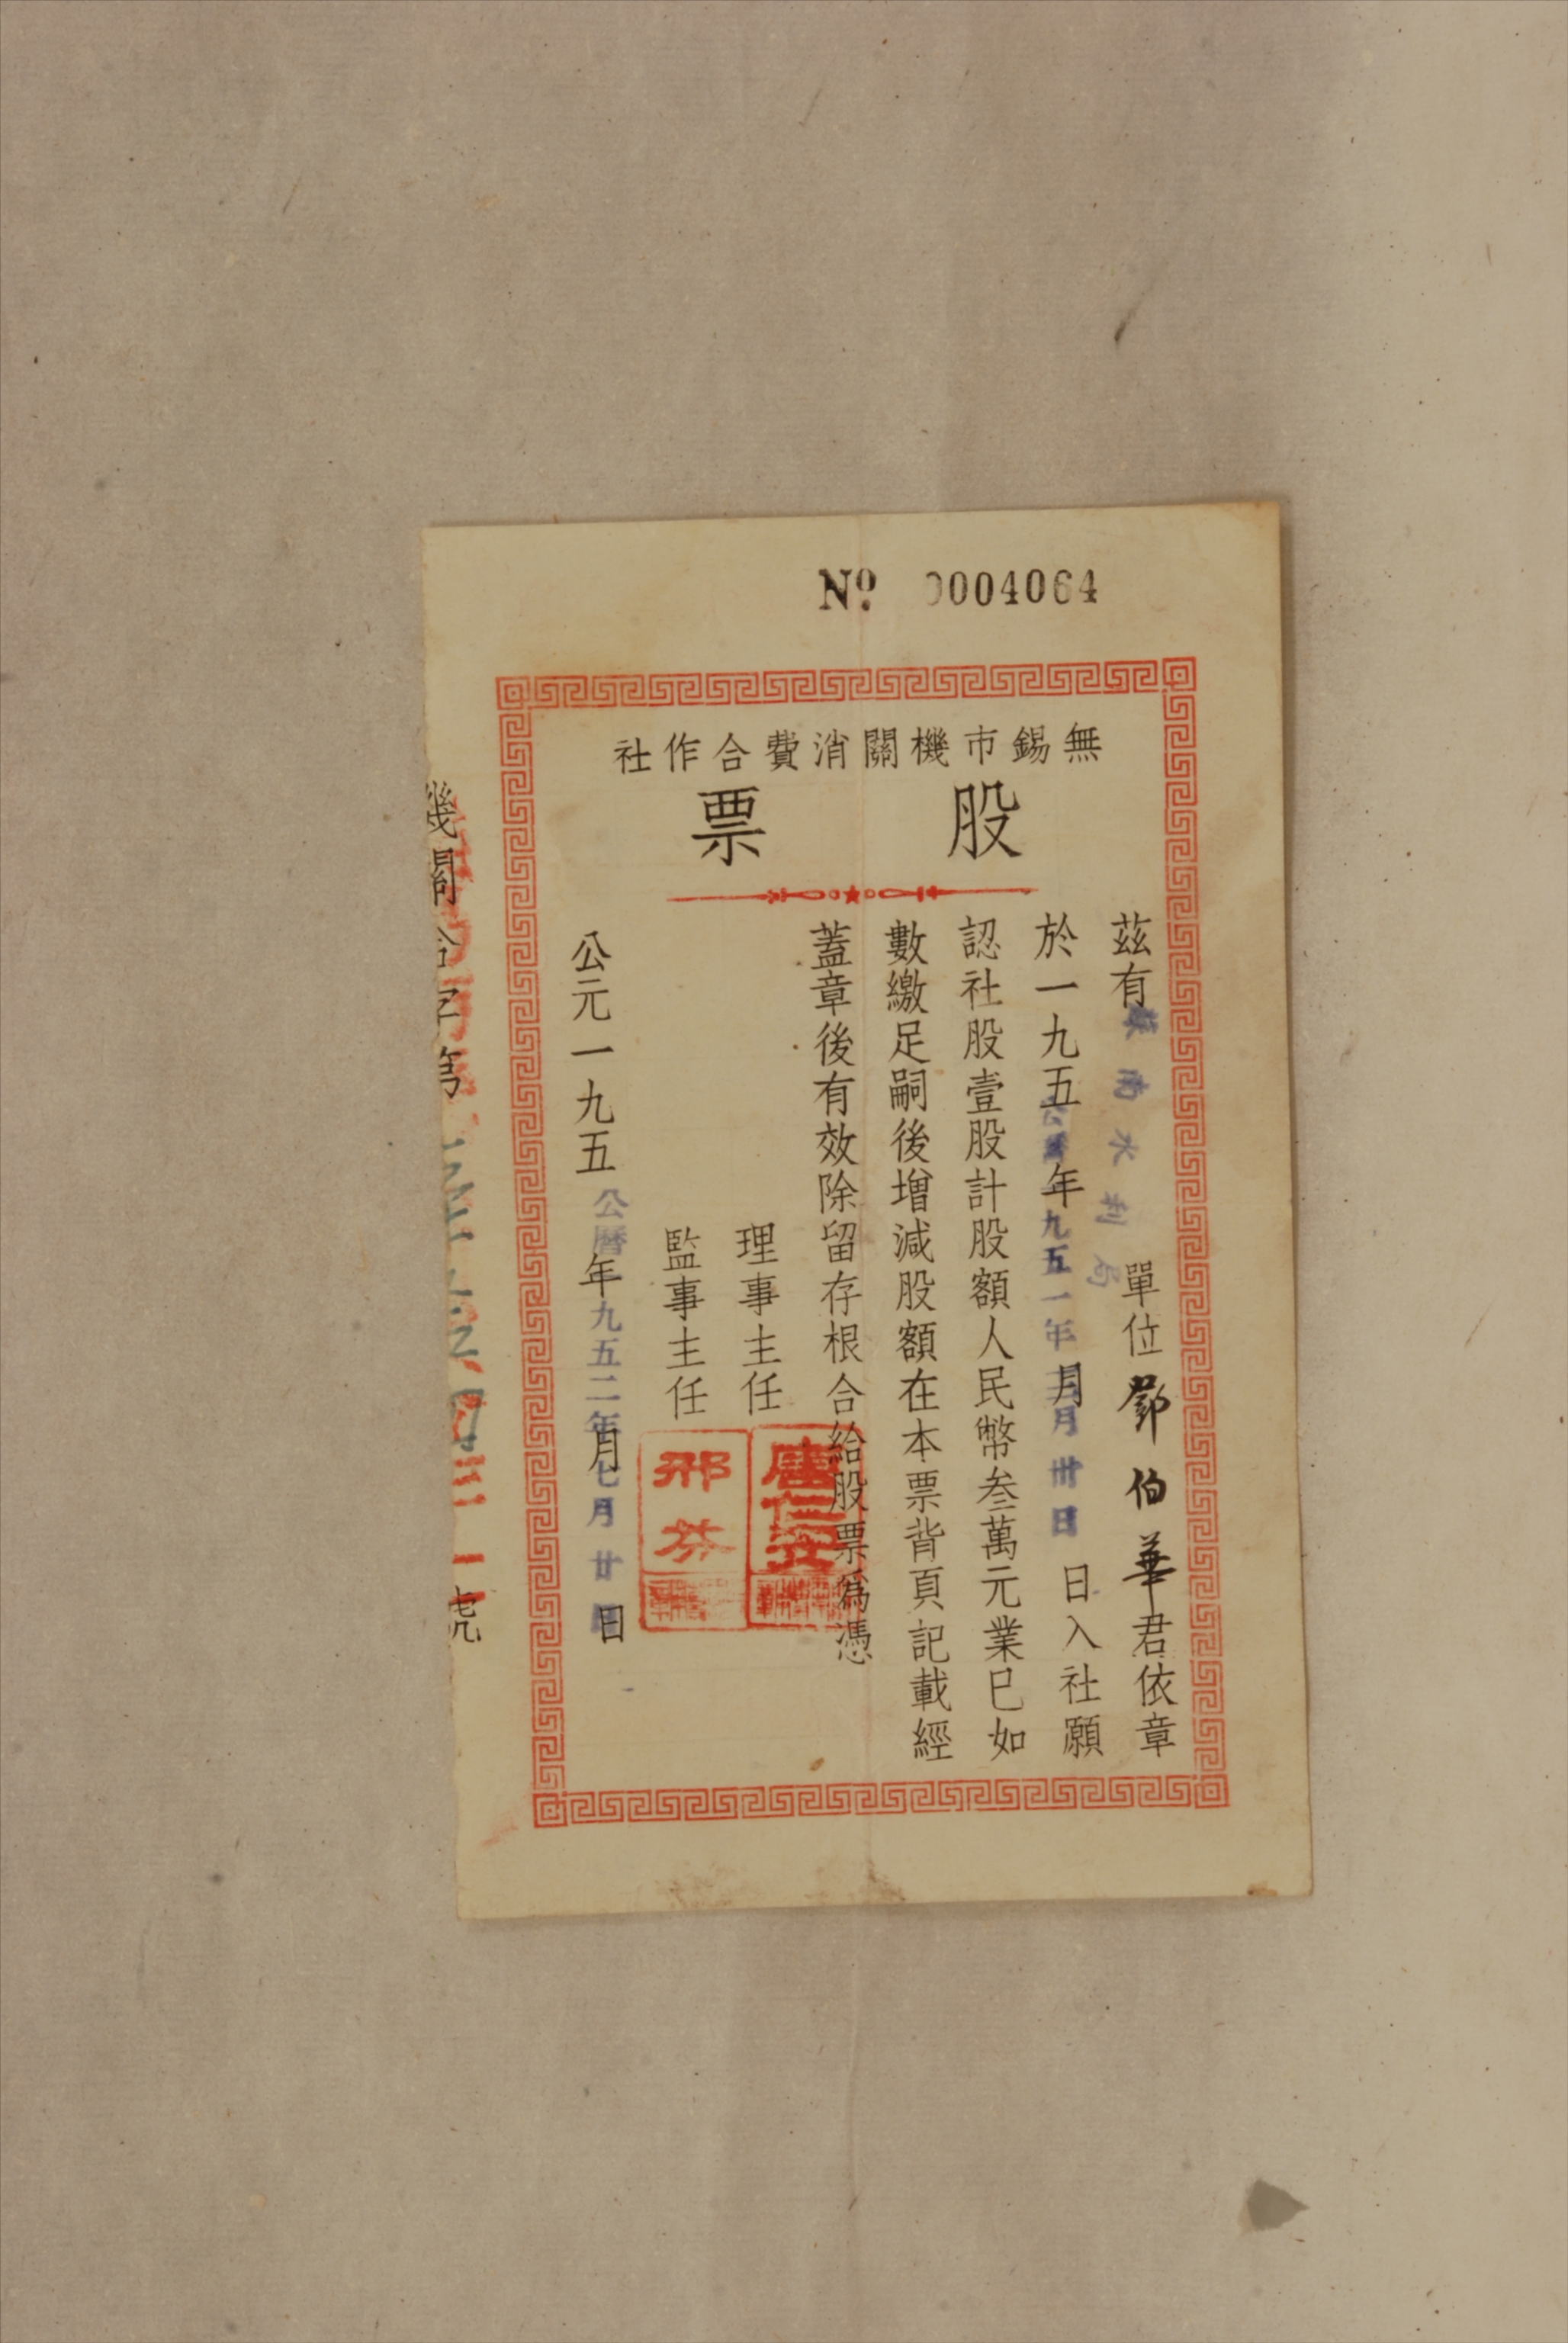 No. 0004064
無錫市機關消費合作社
股票
茲有蘇南水利局單位鄧伯華君依章
於一九五年月日入社願
公曆一九五一年月卅日
認社股壹股計股額人民幣叁萬元業已如
數繳足嗣後增減股額在本票背頁記載經
蓋章後有效除留存根合給股票爲憑
理事主任
唐仁
監事主任
邢芬
公元一九五年月日
公曆一九五二年七月廿日
機關合字第
號